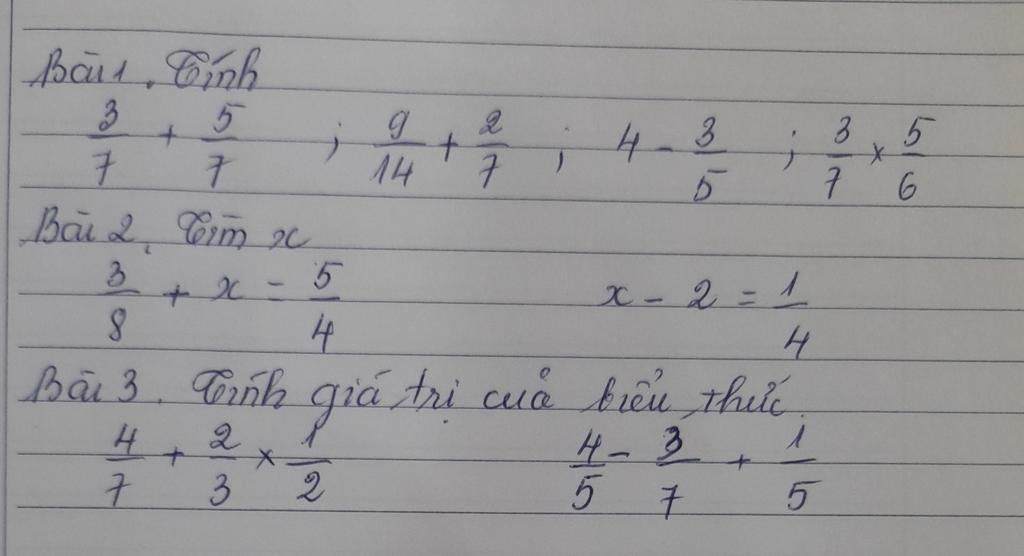 Bài 1. Tính
3/7 + 5/7 ; 9/14 + 2/7 ; 4 - 3/5 ; 3/7 × 5/6
Bài 2. Tìm x
3/8 + x = 5/4 x - 2 = 1/4
Bài 3. Tính giá trị của biểu thức.
4/7 + 2/3 × 1/2 4/5 - 3/7 + 1/5